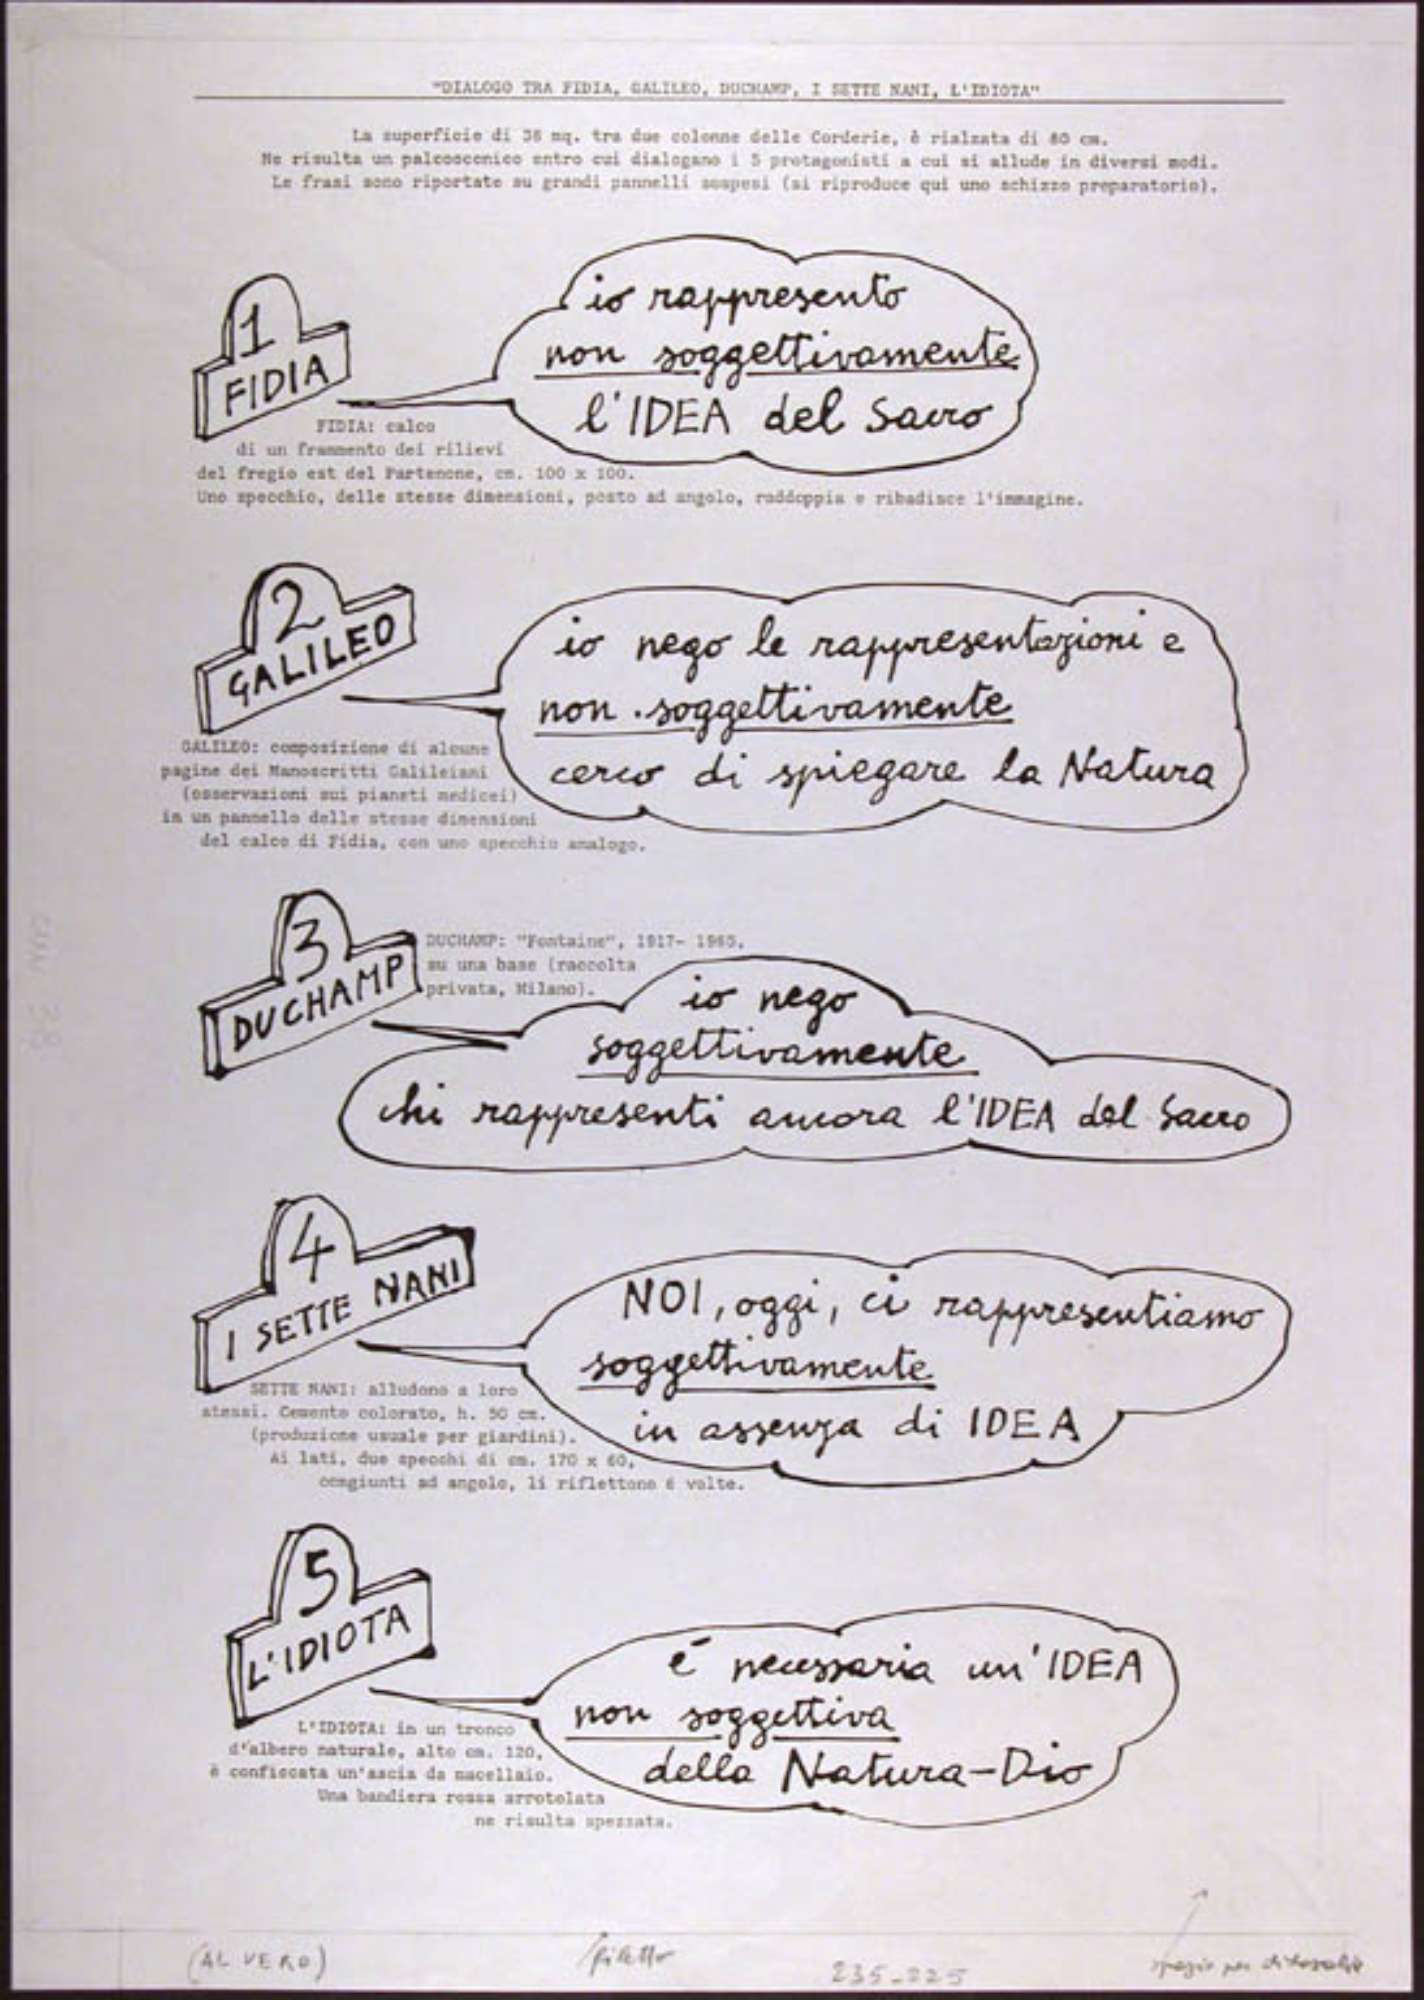 "DIALOGO TRA FIDIA, GALILEO, DUCHAMP, I SETTE NANI, L'IDIOTA"
La superficie di 36 mq. tra due colonne delle Corderie, è rialzata di 80 cm.
Ne risulta un palcoscenico entro cui dialogano i 5 protagonisti a cui si allude in diversi modi.
Le frasi sono riportate su grandi pannelli sospesi (si riproduce qui uno schizzo preparatorio).
1
FIDIA
io rappresento
non soggettivamente
l'IDEA del Sacro
FIDIA: calco
di un frammento dei rilievi
del fregio est del Partenone, cm. 100 x 100.
Uno specchio, delle stesse dimensioni, posto ad angolo, raddoppia e ribadisce l'immagine.
2
GALILEO
io nego le rappresentazioni e
non soggettivamente
cerco di spiegare la Natura
GALILEO: composizione di alcune
pagine dei Manoscritti Galileiani
(osservazioni sui pianeti medicei)
in un pannello delle stesse dimensioni
del calco di Fidia, con uno specchio analogo.
3
DUCHAMP
DUCHAMP: "Fontaine", 1917- 1965,
su una base (raccolta
privata, Milano).
io nego
soggettivamente
chi rappresenti ancora l'IDEA del Sacro
4
I SETTE NANI
NOI, oggi, ci rappresentiamo
soggettivamente
in assenza di IDEA
SETTE NANI: alludono a loro
stessi. Cemento colorato, h. 50 cm.
(produzione usuale per giardini).
Ai lati, due specchi di cm. 170 x 60,
congiunti ad angolo, li riflettono 6 volte.
5
L'IDIOTA
é necessaria un'IDEA
non soggettiva
della Natura-Dio
L'IDIOTA: in un tronco
d'albero naturale, alto cm. 120,
è conficcata un'ascia da macellaio.
Una bandiera rossa arrotolata
ne risulta spezzata.
(AL VERO)
filetto
235-225
spazio per didascalie